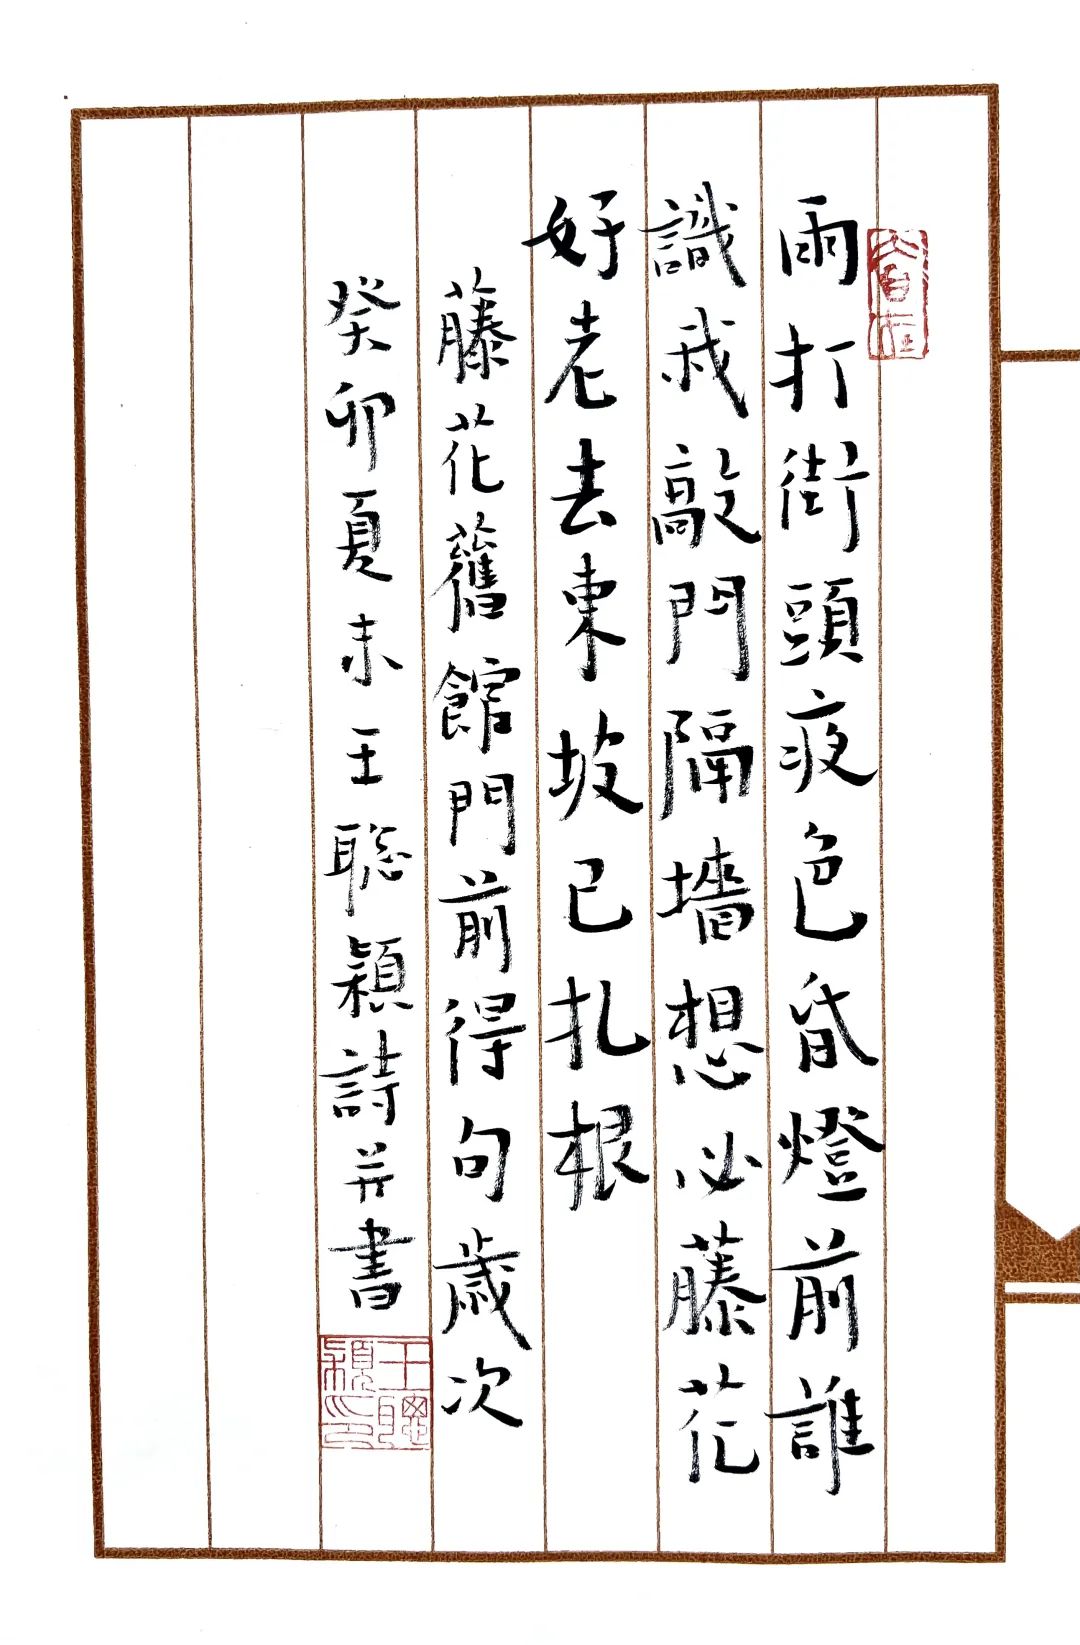 雨打街頭夜色昏燈前誰
識我敲門隔墻想必藤花
好老去東坡已扎根
藤花舊館門前得句歲次
癸卯夏末王聰穎詩并書
大自在
王聰穎印